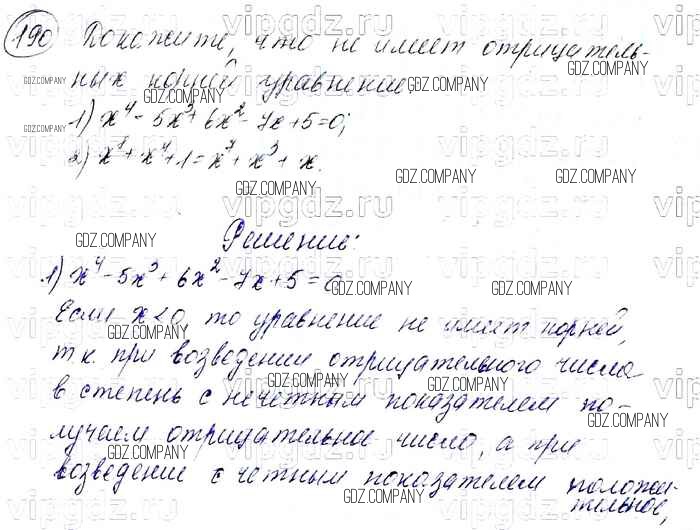 190 Докажите, что не имеет отрицатель-
ных корней уравнение:
1) x⁴ - 5x³ + 6x² - 7x + 5 = 0;
2) x⁸ + x⁴ + 1 = x⁷ + x³ + x.
Решение:
1) x⁴ - 5x³ + 6x² - 7x + 5 = 0
Если x < 0, то уравнение не имеет корней,
т.к. при возведении отрицательного числа
в степень с нечетным показателем по-
лучаем отрицательное число, а при
возведение с четным показателем положи-
тельное,